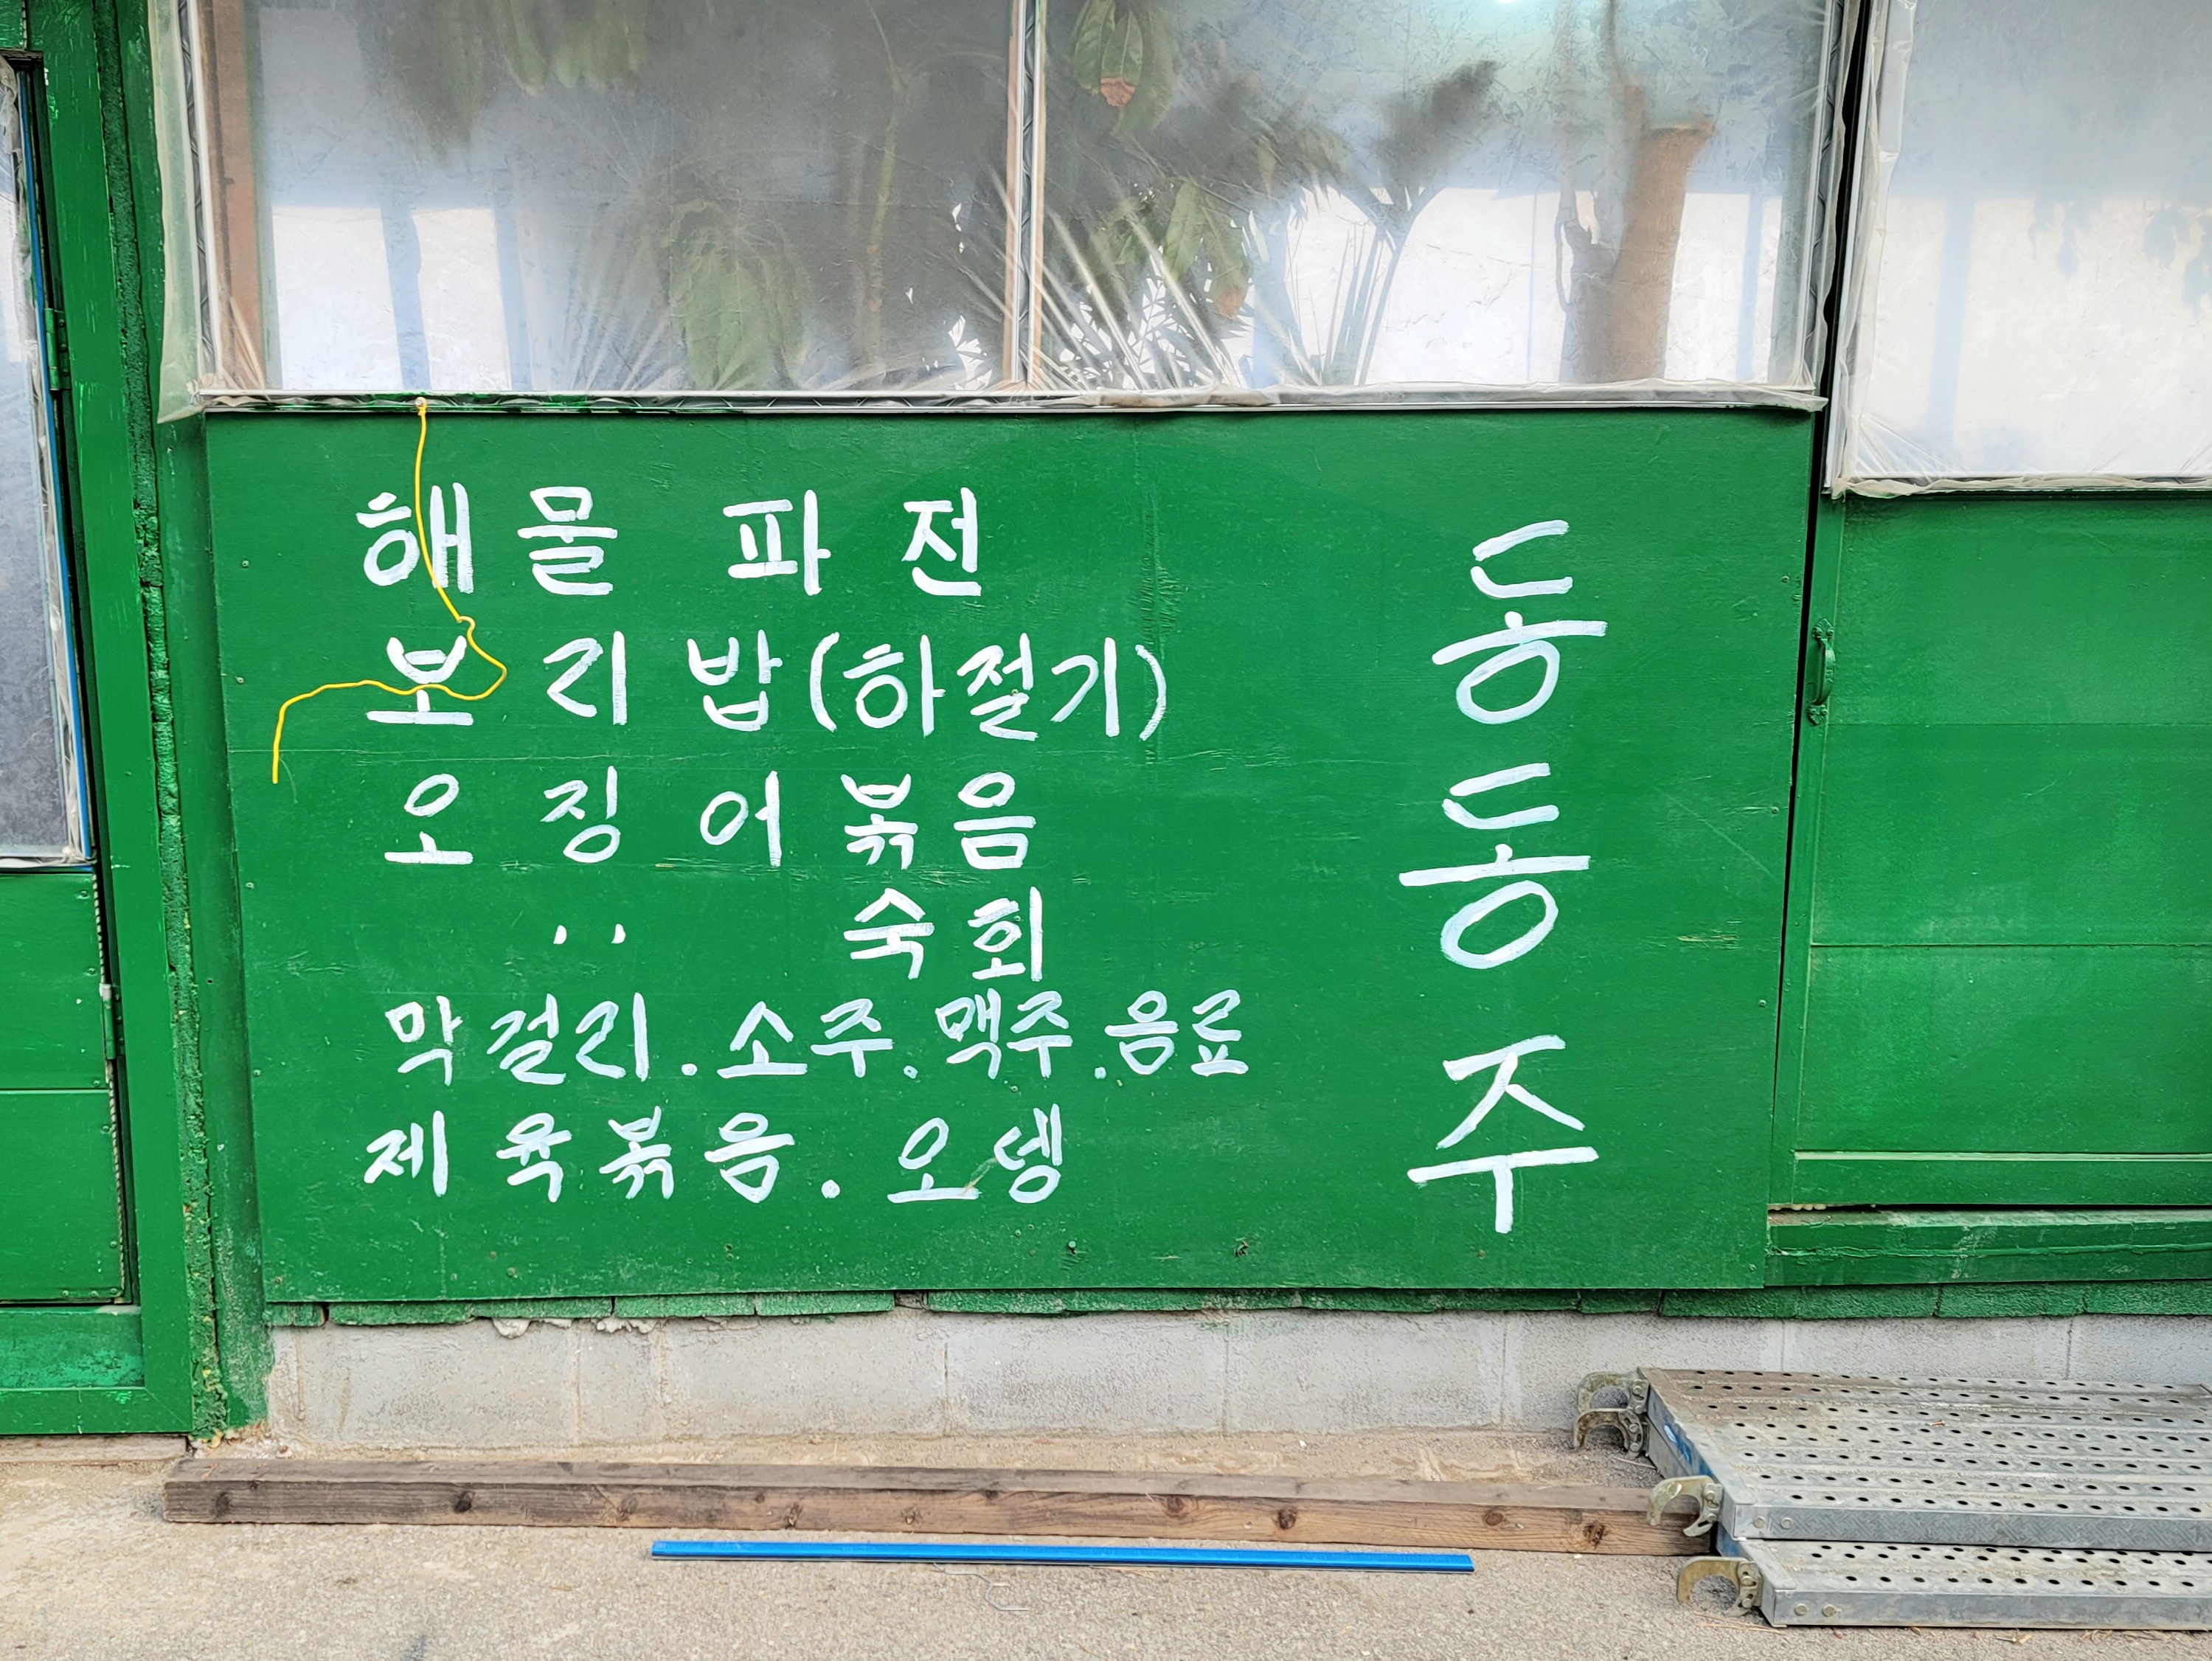 해물 파전
보리밥(하절기)
오징어볶음
〃 숙회
막걸리.소주.맥주.음료
제육볶음.오뎅
동동주